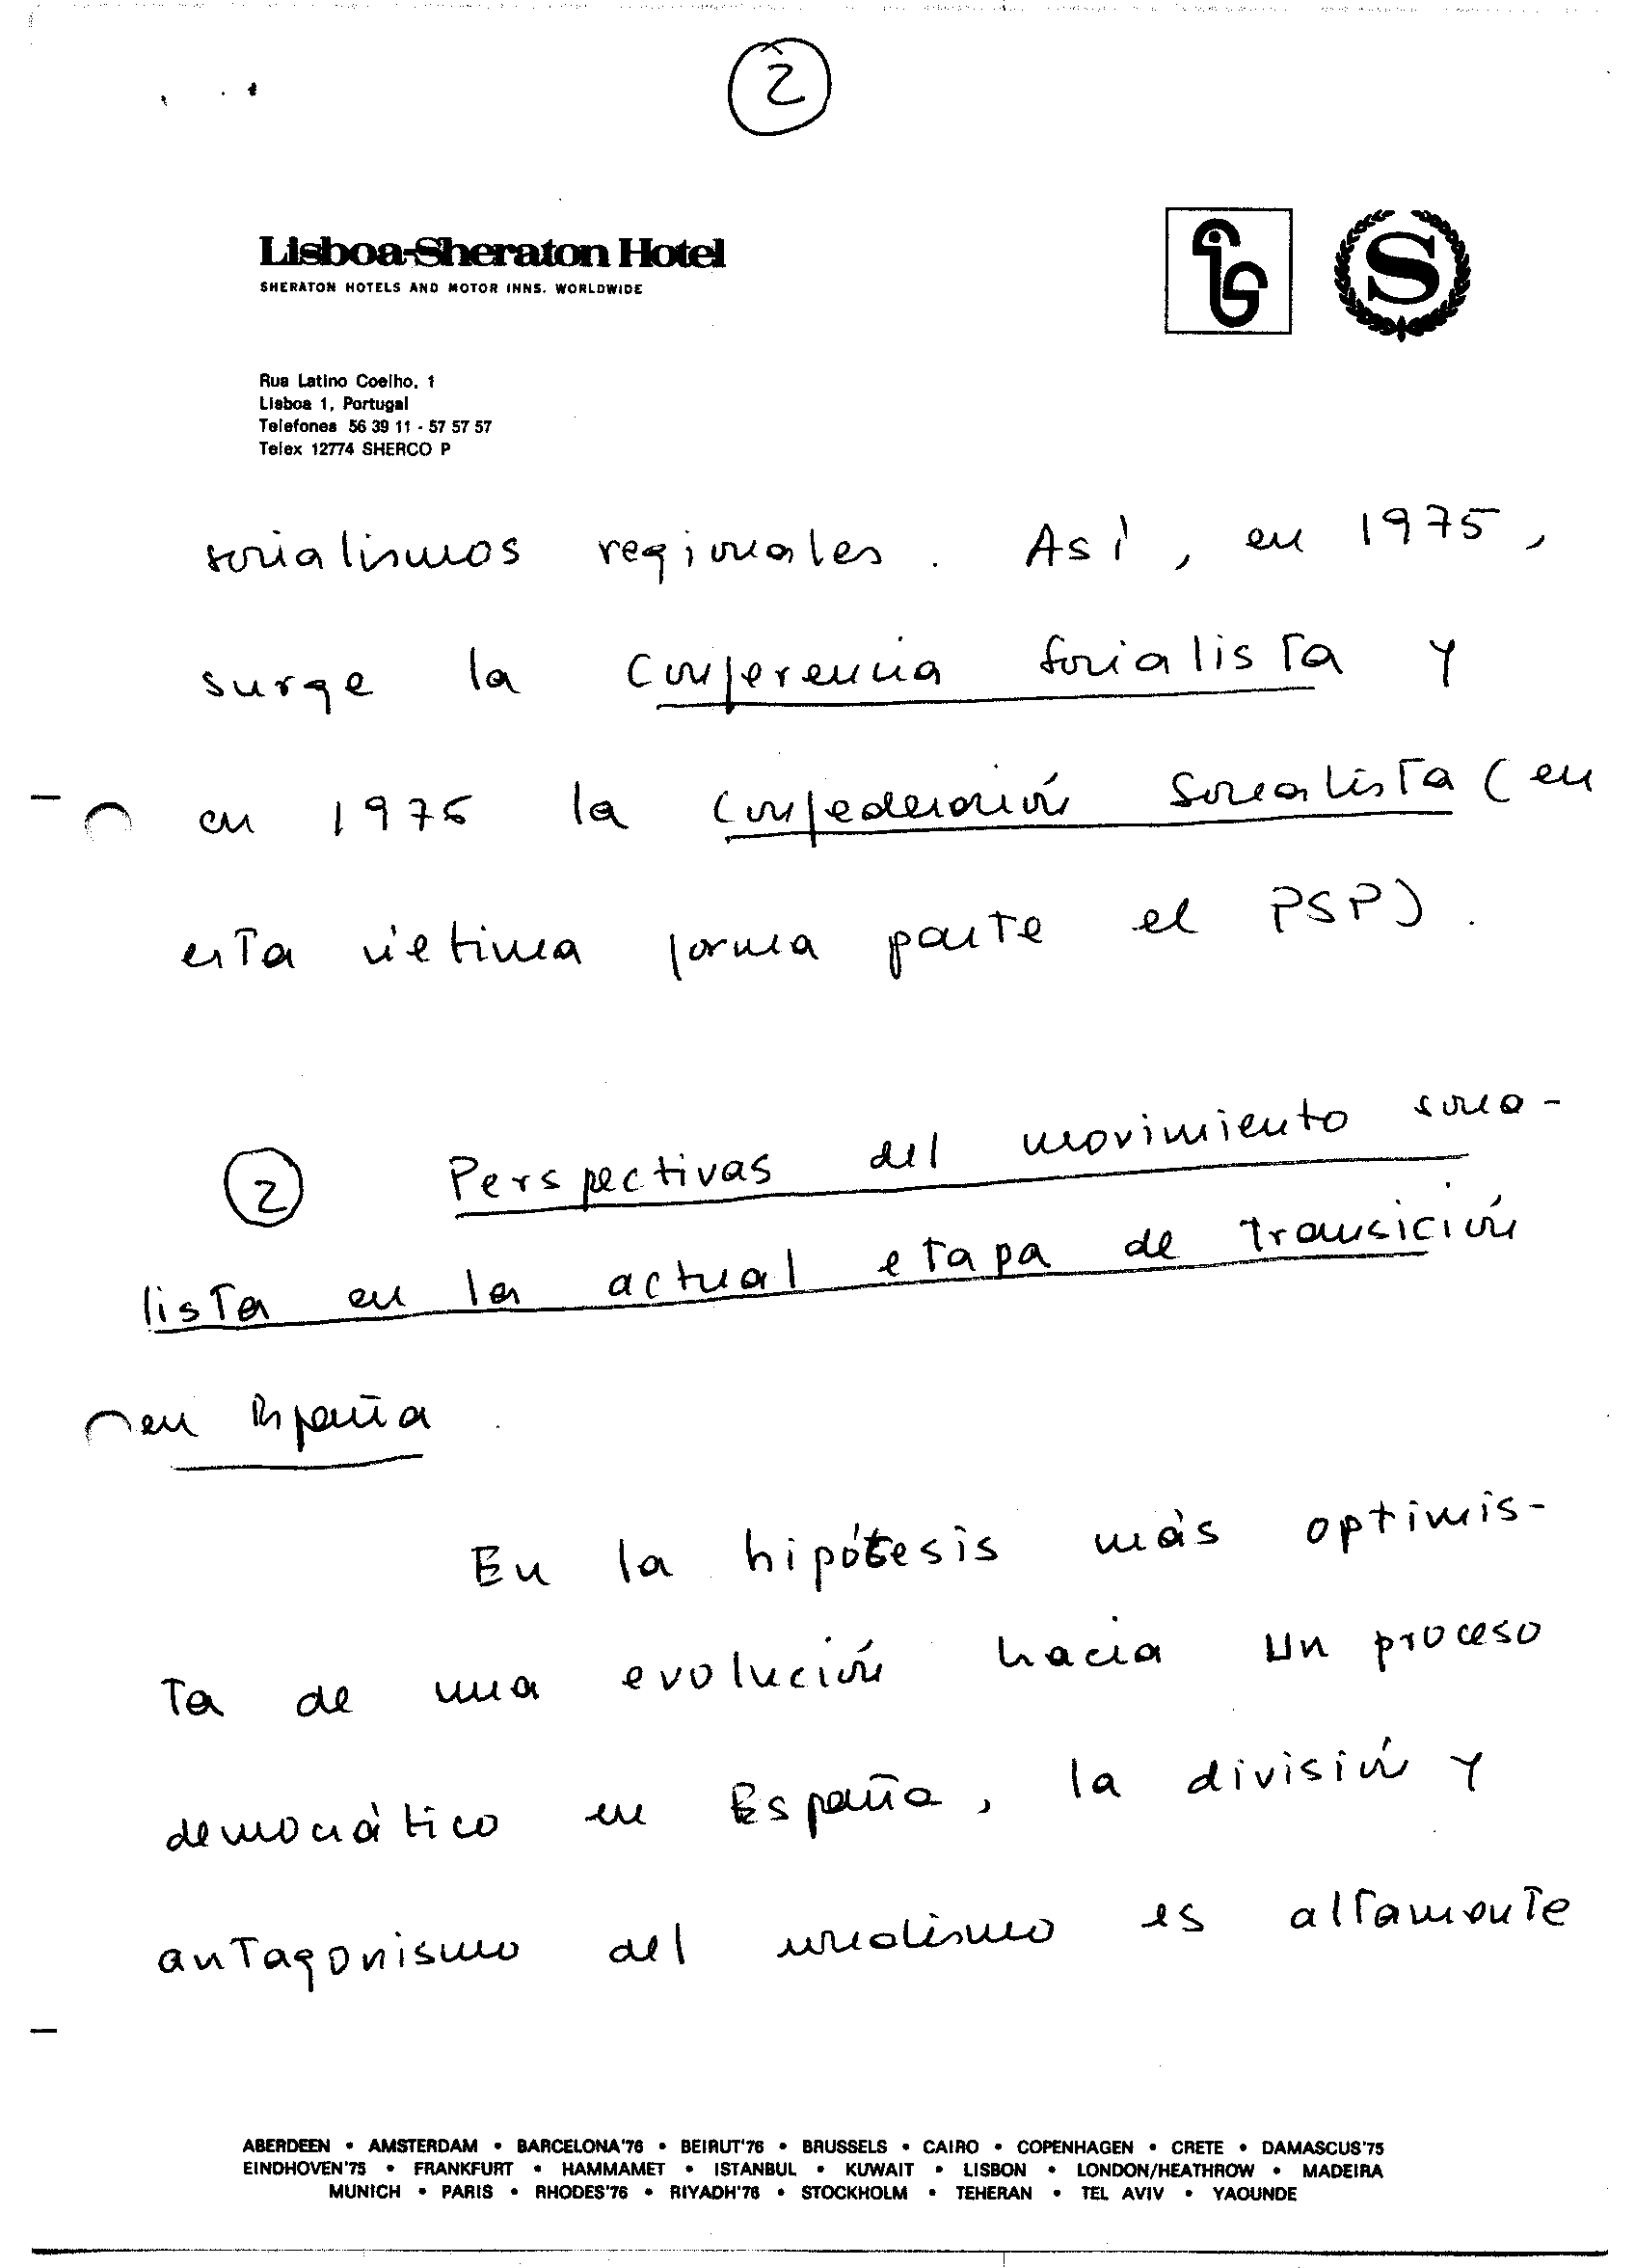 2
Lisboa-Sheraton Hotel
SHERATON HOTELS AND MOTOR INNS. WORLDWIDE
S
Rua Latino Coelho, 1
Lisboa 1, Portugal
Telefones 56 39 11 - 57 57 57
Telex 12774 SHERCO P
socialismos regionales. Así, en 1975,
surge la Conferencia Socialista y
en 1976 la Confederación Socialista (en
esta última forma parte el PSP).
2 Perspectivas del movimiento socia-
lista en la actual etapa de transición
en España.
En la hipótesis más optimis-
ta de una evolución hacia un proceso
democrático en España, la división y
antagonismo del socialismo es altamente
ABERDEEN • AMSTERDAM • BARCELONA'76 • BEIRUT'76 • BRUSSELS • CAIRO • COPENHAGEN • CRETE • DAMASCUS'75
EINDHOVEN'75 • FRANKFURT • HAMMAMET • ISTANBUL • KUWAIT • LISBON • LONDON/HEATHROW • MADEIRA
MUNICH • PARIS • RHODES'76 • RIYADH'76 • STOCKHOLM • TEHERAN • TEL AVIV • YAOUNDE